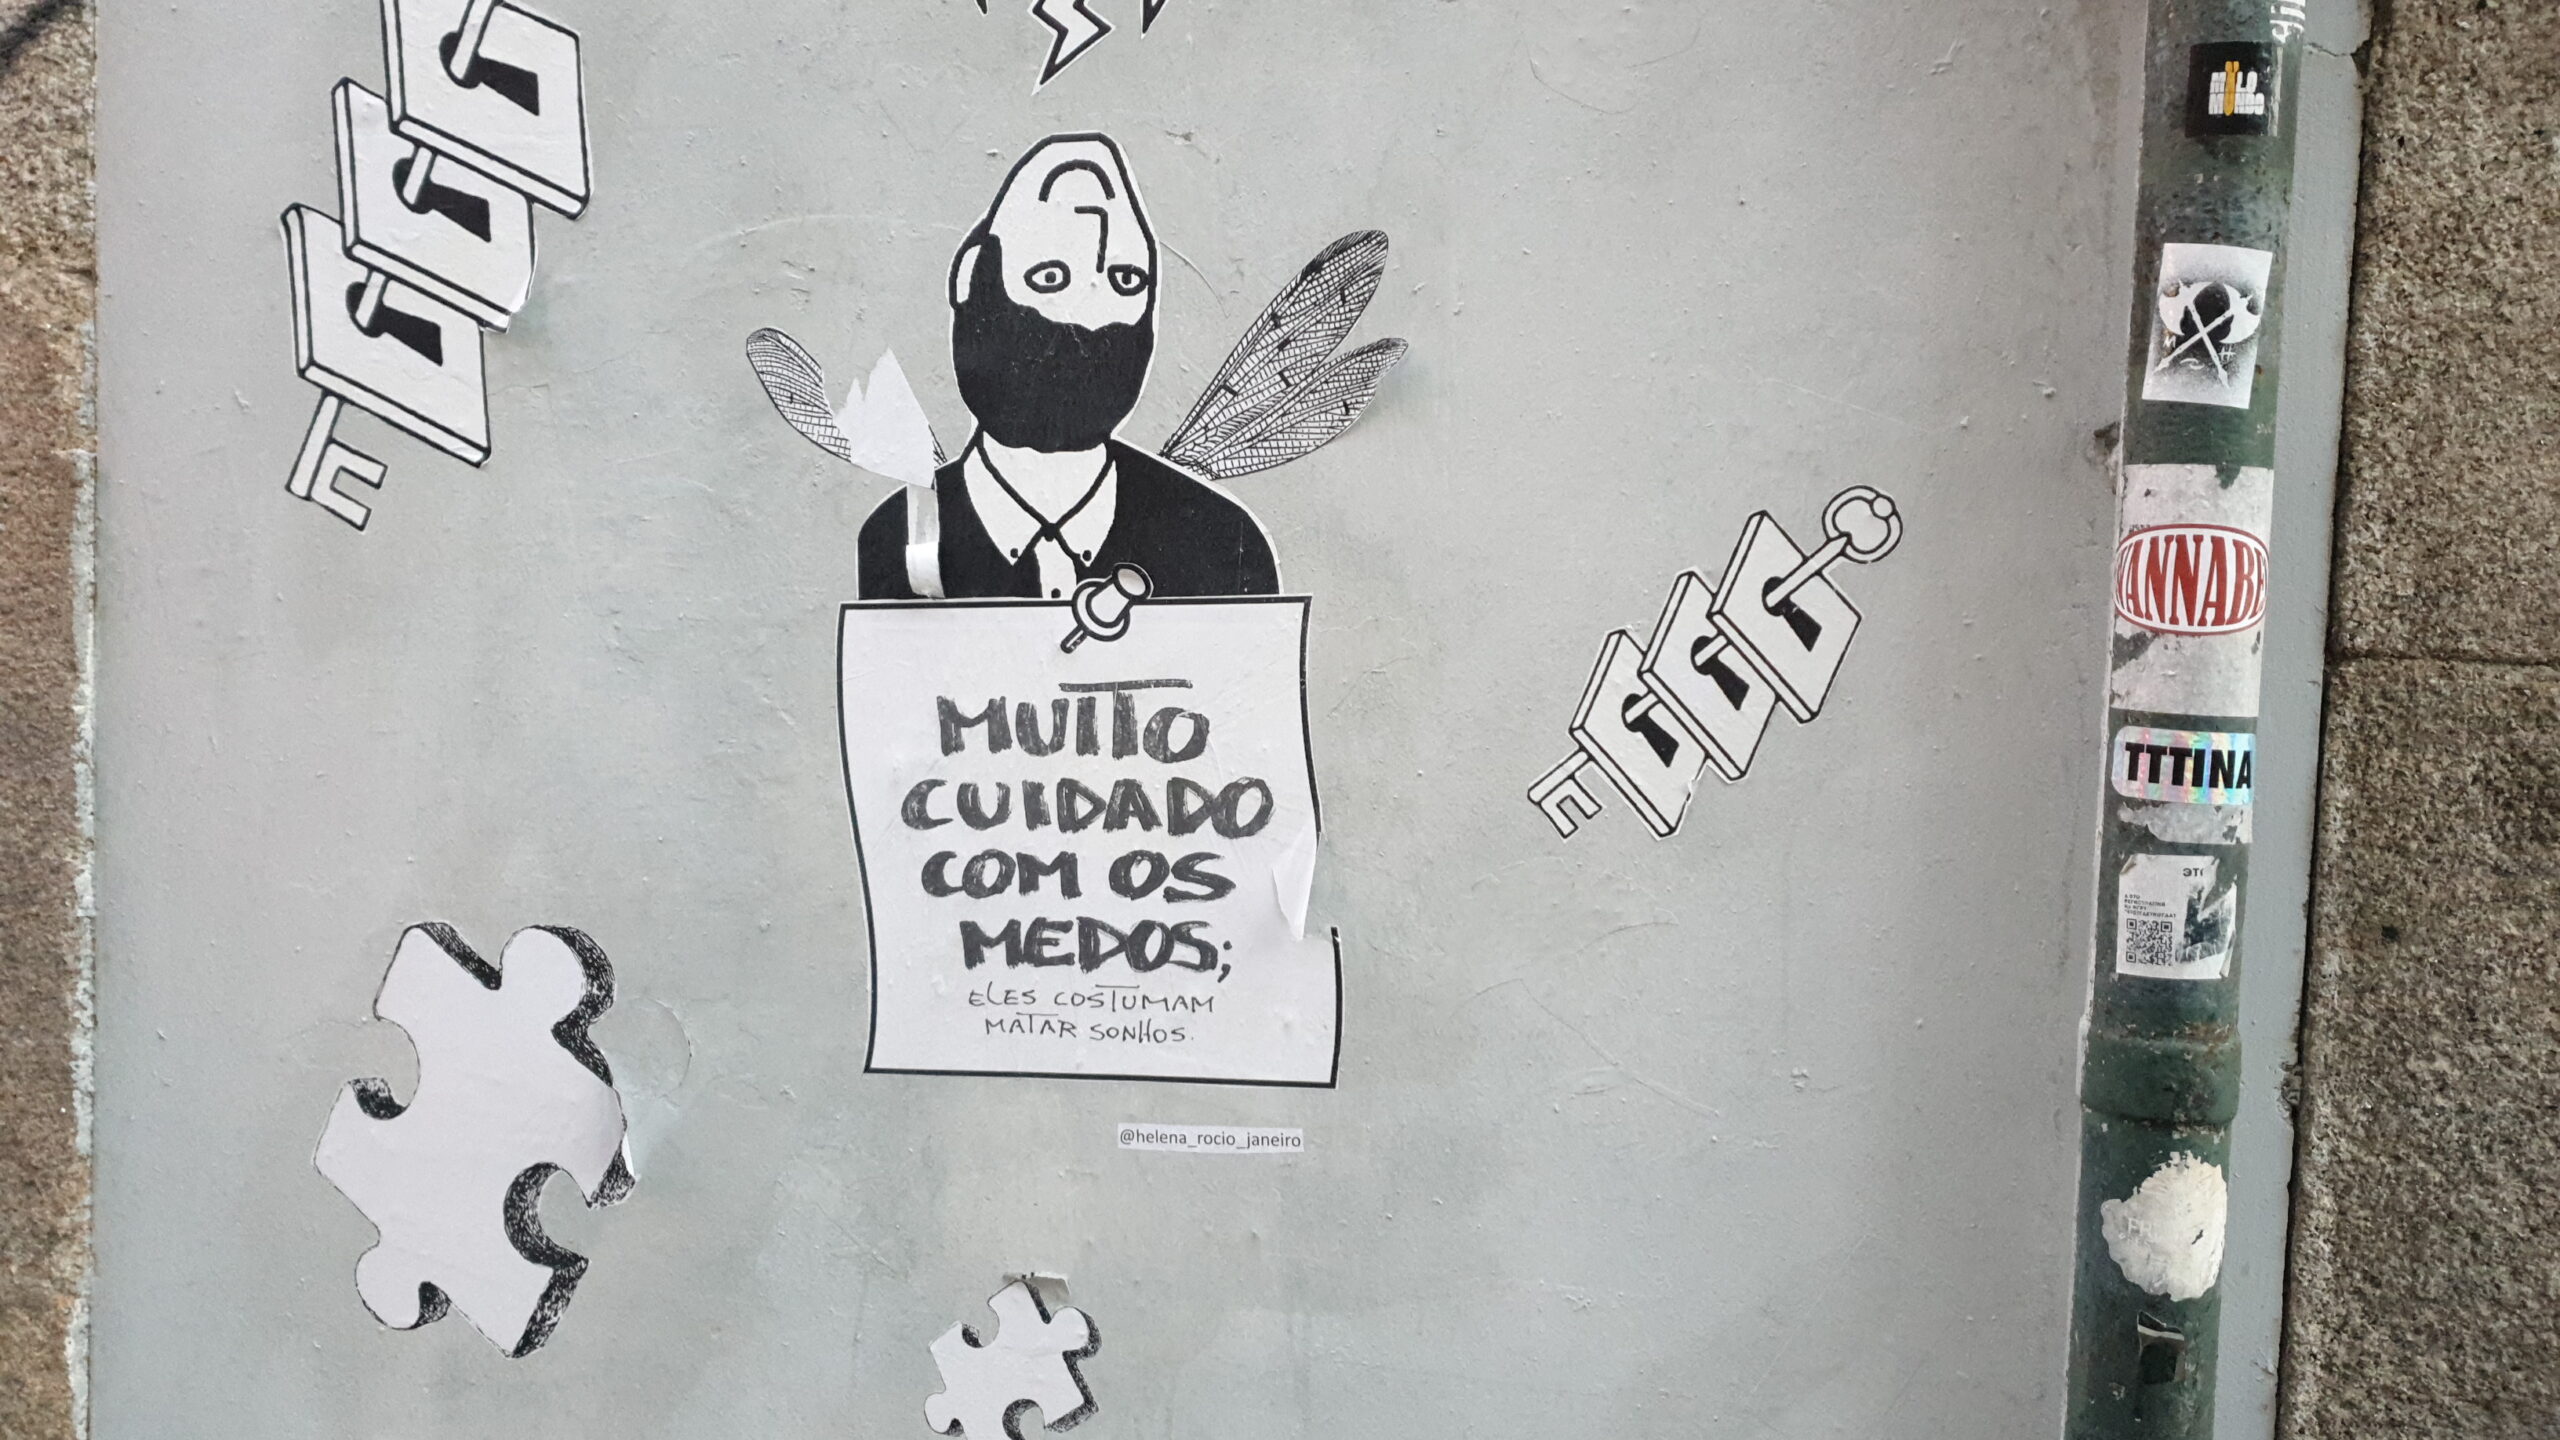 MUITO
CUIDADO
COM OS
MEDOS;
ELES COSTUMAM
MATAR SONHOS.
@helena_rocio_janeiro
WANNABE
TTTINA
ЭТО